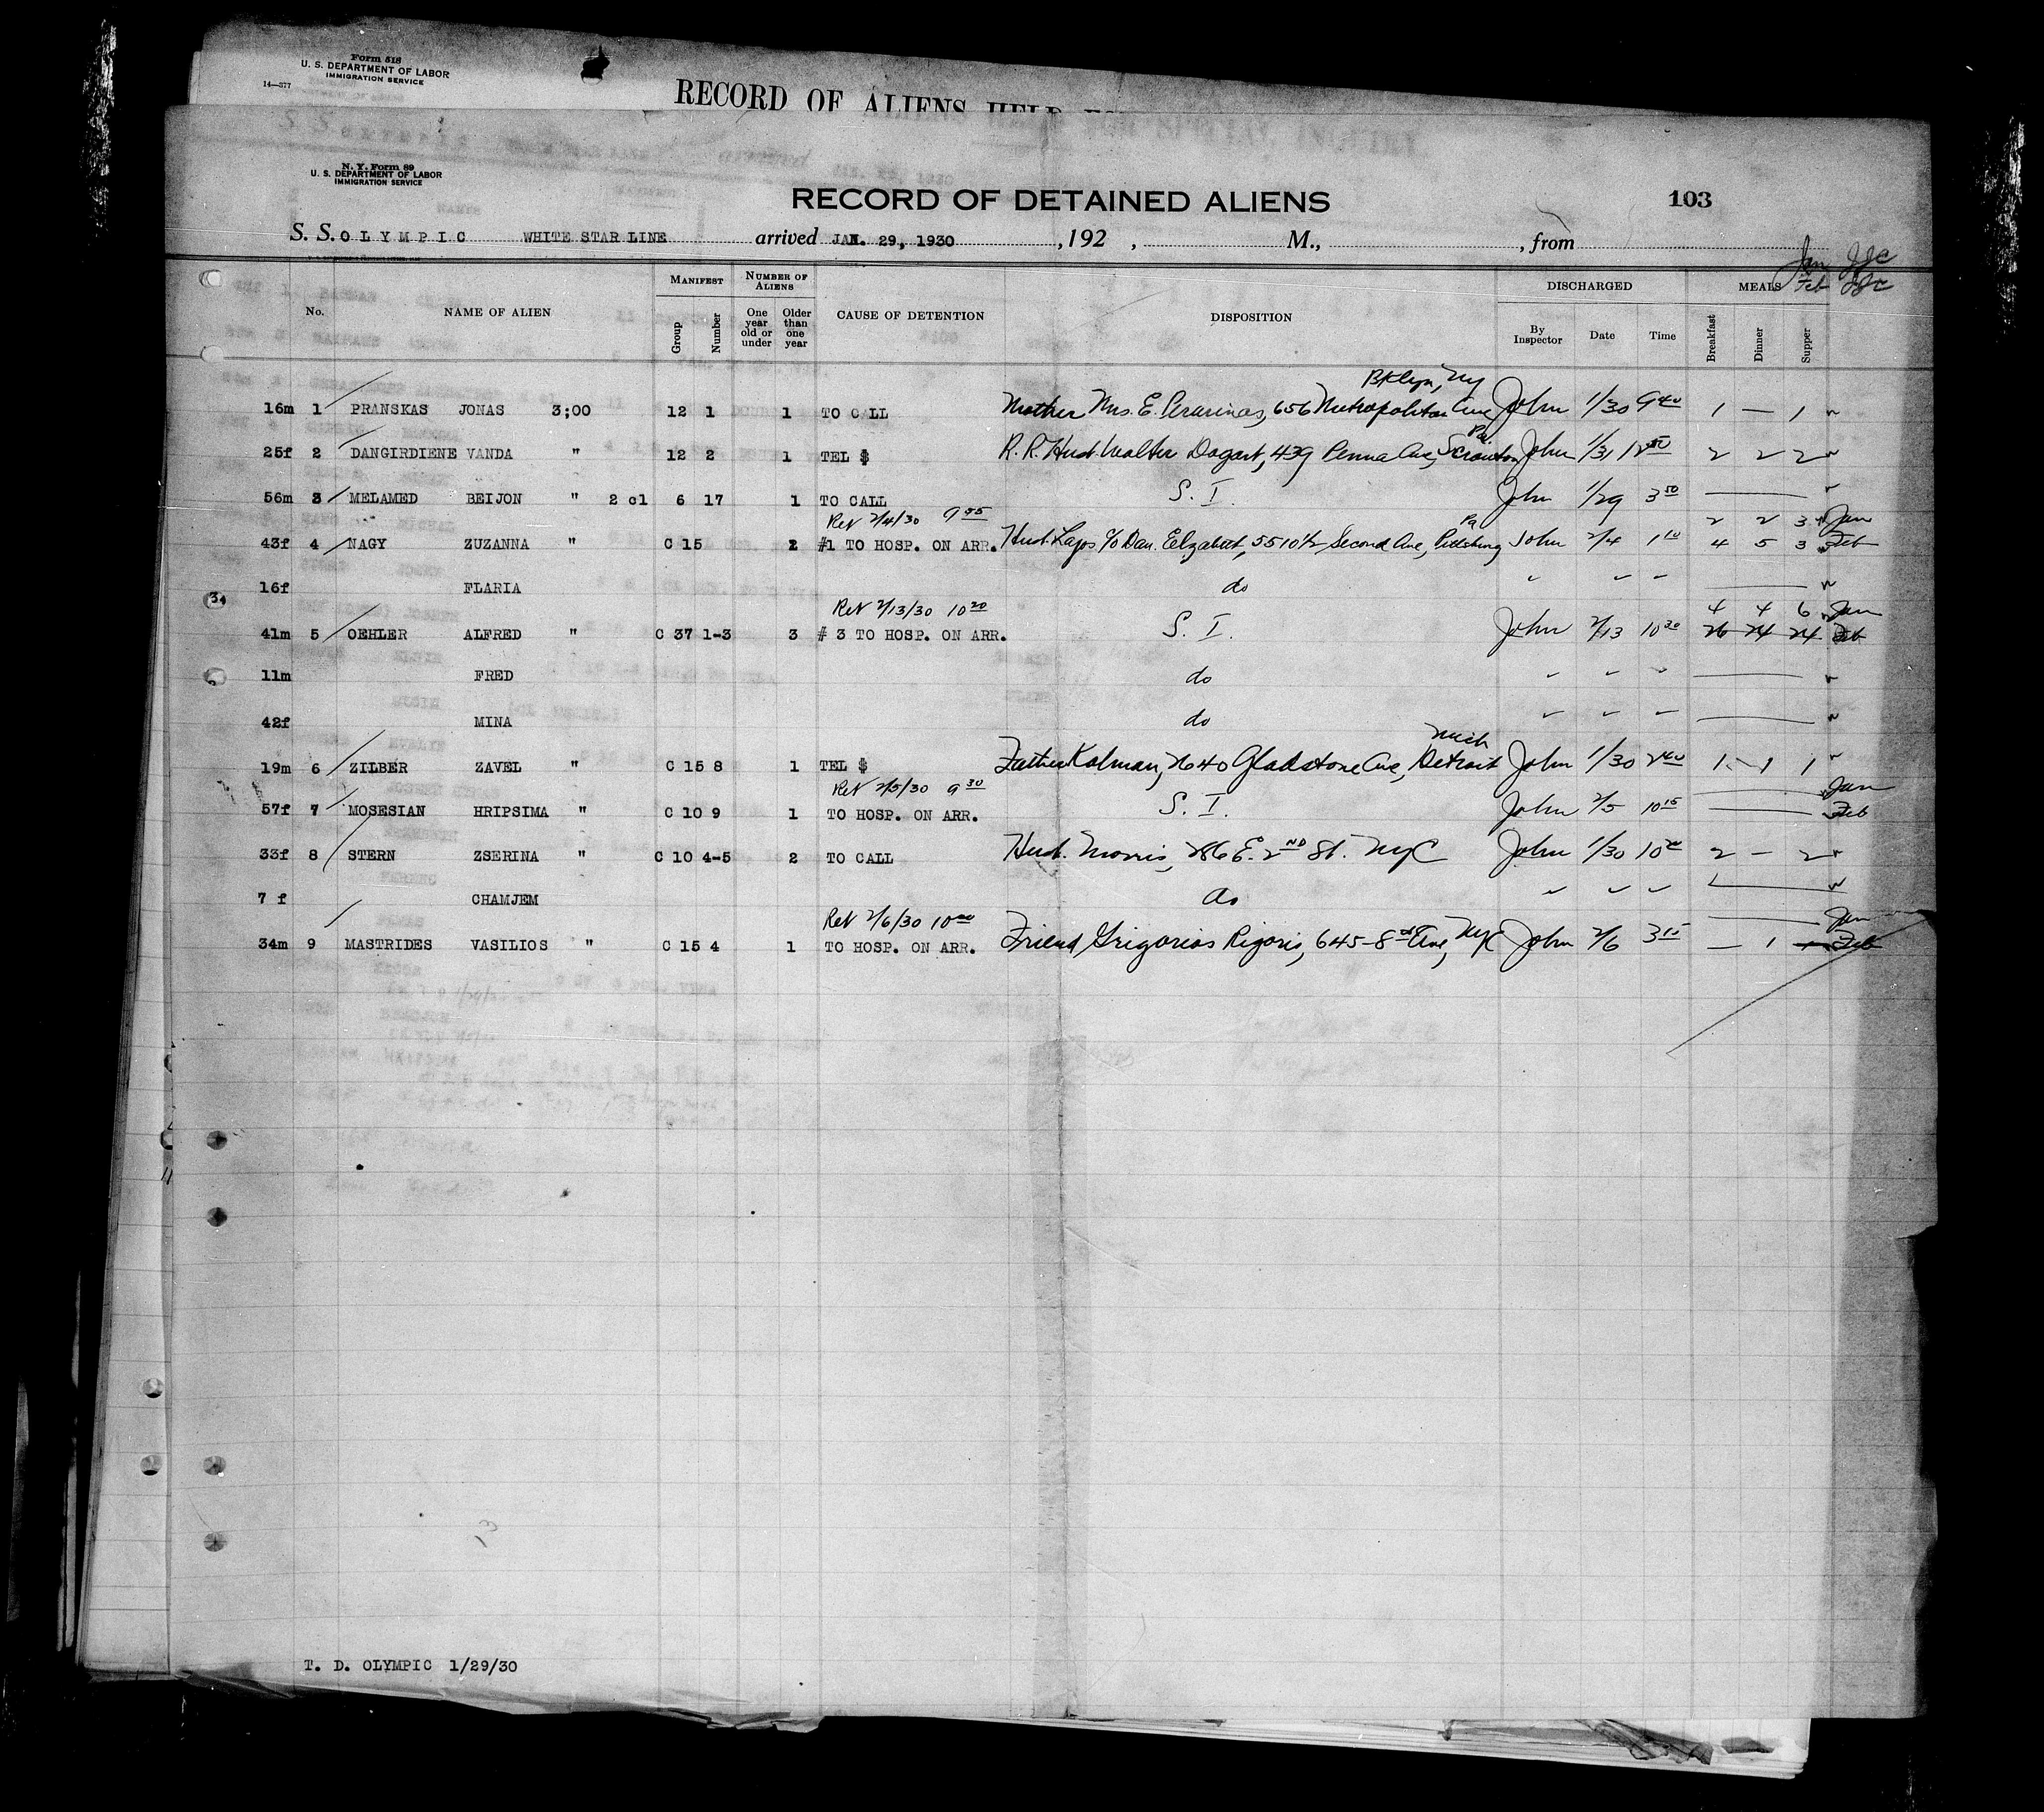 Form 518
U. S. DEPARTMENT OF LABOR
IMMIGRATION SERVICE
14—377
RECORD OF ALIENS HELD
N. Y. Form 89
U. S. DEPARTMENT OF LABOR
IMMIGRATION SERVICE
RECORD OF DETAINED ALIENS 103
S. S. OLYMPIC WHITE STAR LINE arrived JAN. 29, 1930, 192 , M., , from
Jan JJC
Feb JJC
No. NAME OF ALIEN MANIFEST Group Number NUMBER OF ALIENS One year old or under Older than one year CAUSE OF DETENTION DISPOSITION DISCHARGED By Inspector Date Time MEALS Breakfast Dinner Supper
Bklyn, Ny
16m 1 PRANSKAS JONAS 3;00 12 1 1 TO CALL Mother Mrs. E. 656 Metropolitan Ave John 1/30 9 40 1 — 1 "
Pa.
25f 2 DANGIRDIENE VANDA " 12 2 1 TEL $ R. R. Husb. Walter Dagart, 439 Penna Ave, Scranton John 1/31 12 50 2 2 2 "
56m 3 MELAMED BEIJON " 2 cl 6 17 1 TO CALL S. I. John 1/29 3 50 — "
Ret 2/4/30 9 55 Pa 2 2 3 Jan
43f 4 NAGY ZUZANNA " C 15 2 #1 TO HOSP. ON ARR. Husb. Lajos c/o Dau. Elizabeth, 5510 1/2 Second Ave, Pittsburg John 2/4 1 10 4 5 3 Feb
16f FLARIA do " " " — "
Ret 2/13/30 10 20 4 4 6 Jan
41m 5 OEHLER ALFRED " C 37 1-3 3 # 3 TO HOSP. ON ARR. S. I. John 2/13 10 30 26 24 24 Feb
11m FRED do " " " — "
42f MINA do " " " — "
Mich
19m 6 ZILBER ZAVEL " C 15 8 1 TEL $ Father Kalman, 2640 Gladstone Ave, Detroit John 1/30 2 40 1 1 1 "
Ret 2/5/30 9 30 — Jan
57f 7 MOSESIAN HRIPSIMA " C 10 9 1 TO HOSP. ON ARR. S. I. John 2/5 10 15 — Feb
33f 8 STERN ZSERINA " C 10 4-5 2 TO CALL Husb. Morris, 286 E. 2ND St. NYC John 1/30 10 20 2 — 2 "
7 f CHAMJEM do " " " — "
Ret 2/6/30 10 00 — Jan
34m 9 MASTRIDES VASILIOS " C 15 4 1 TO HOSP. ON ARR. Friend Grigorios Rigoris, 645-8th Ave, NYC John 2/6 3 15 — 1 Feb
T. D. OLYMPIC 1/29/30